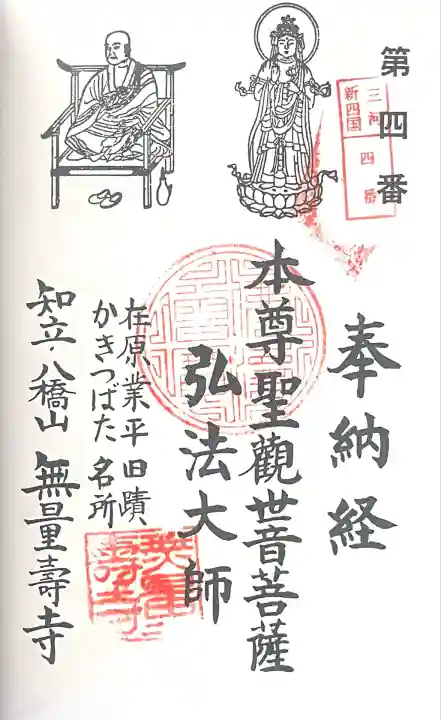 第四番
三河
新四国
四番
奉納経
本尊聖觀世音菩薩
弘法大師
在原業平旧蹟、
かきつばた名所
知立・八橋山 無量壽寺
無量
寿寺